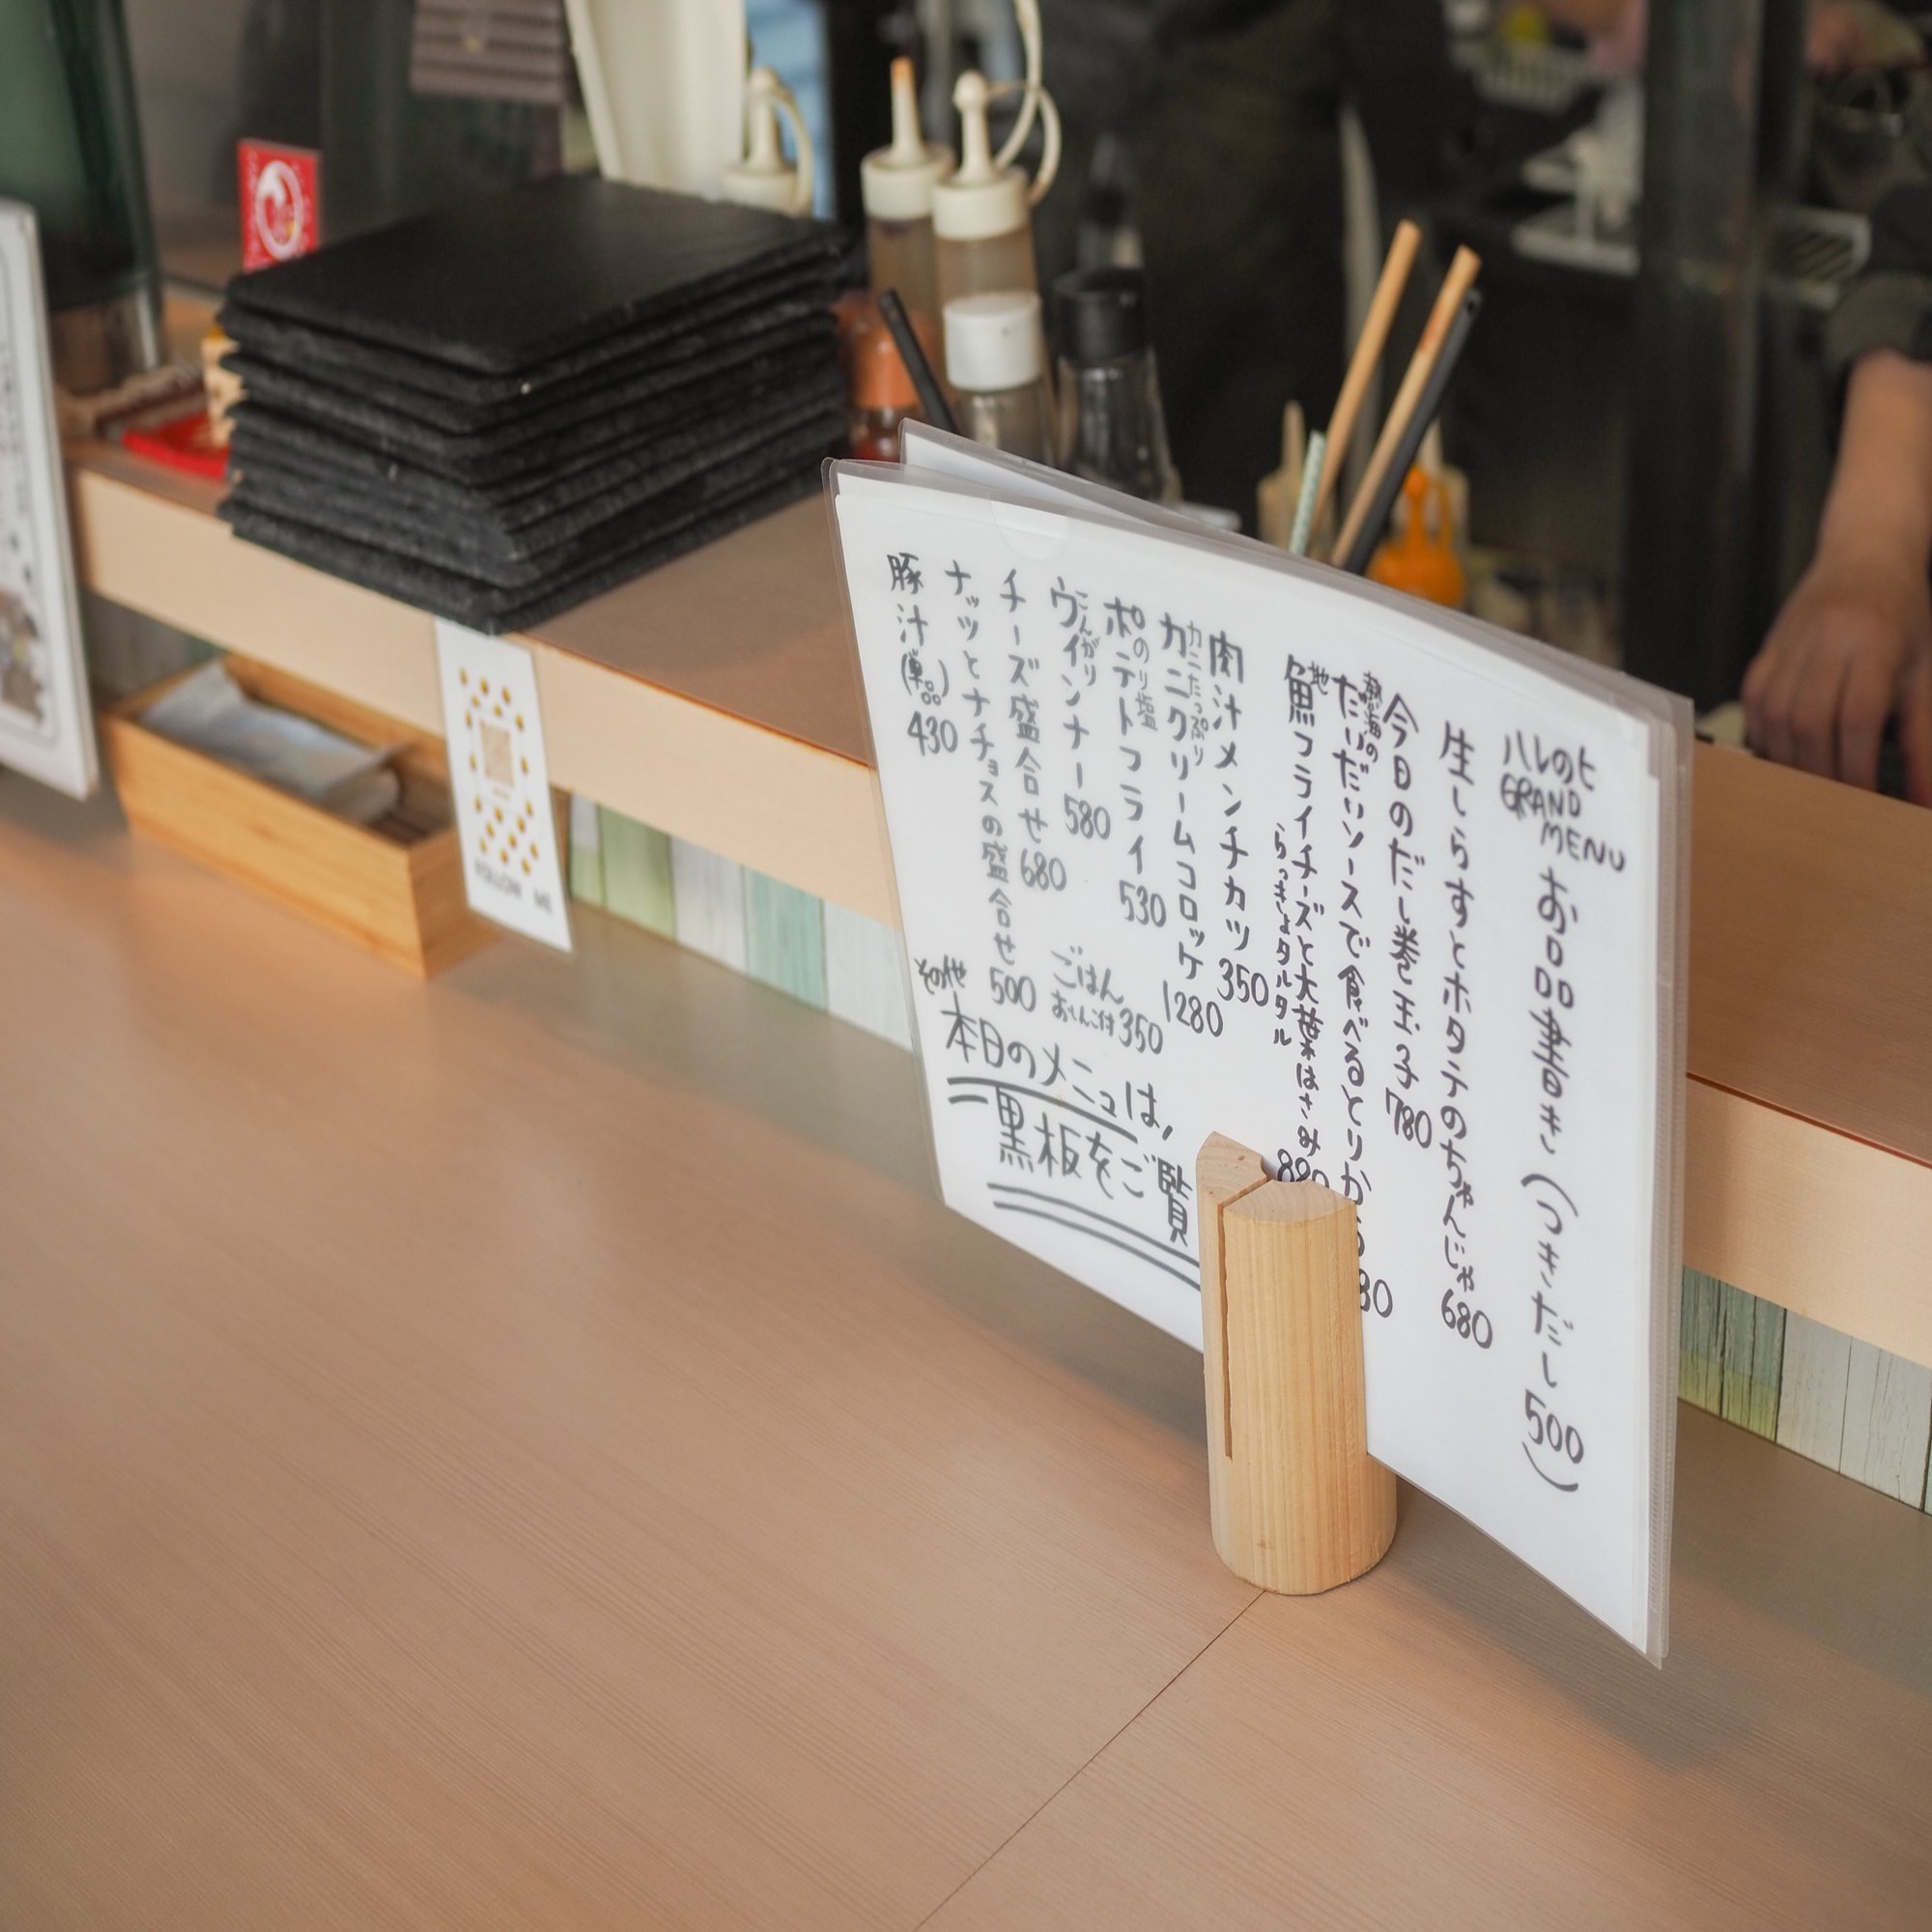 ハレのヒ
GRAND
MENU
お品書き(つきだし500)
生しらすとホタテのちゃんじゃ 680
今日のだし巻玉子 780
熱海の
だいだいソースで食べるとりから 80
地魚フライチーズと大葉はさみ
らっきょタルタル
肉汁メンチカツ 350
カニたっぷり
カニクリームコロッケ 1280
のり塩
ポテトフライ 530
こんがり
ウインナー 580
チーズ盛合せ 680
ナッツとナチョスの盛合せ 500
豚汁(単品) 430
ごはん
おしんこ付 350
その他
本日のメニューは、
黒板をご覧
FOLLOW ME